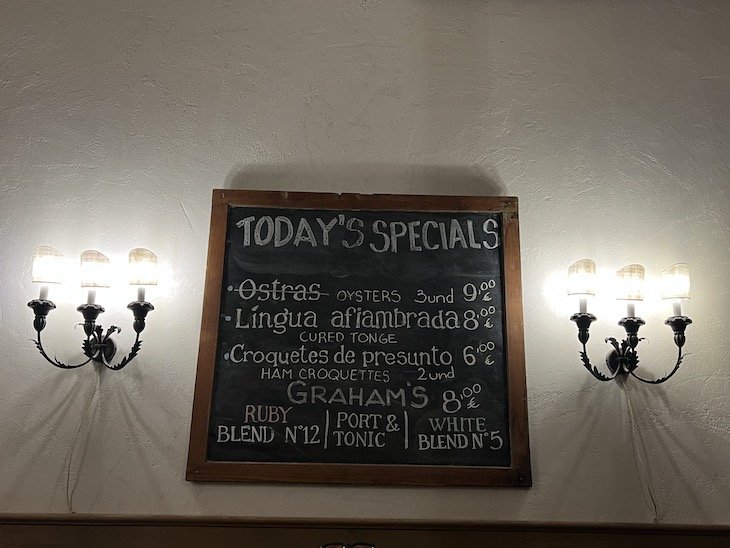 TODAY'S SPECIALS
• Ostras OYSTERS 3und 9,00€
• Língua afiambrada 8,00€
CURED TONGE
• Croquetes de presunto 6,00€
HAM CROQUETTES 2und
GRAHAM'S 8,00€
RUBY BLEND Nº12 | PORT & TONIC | WHITE BLEND Nº5